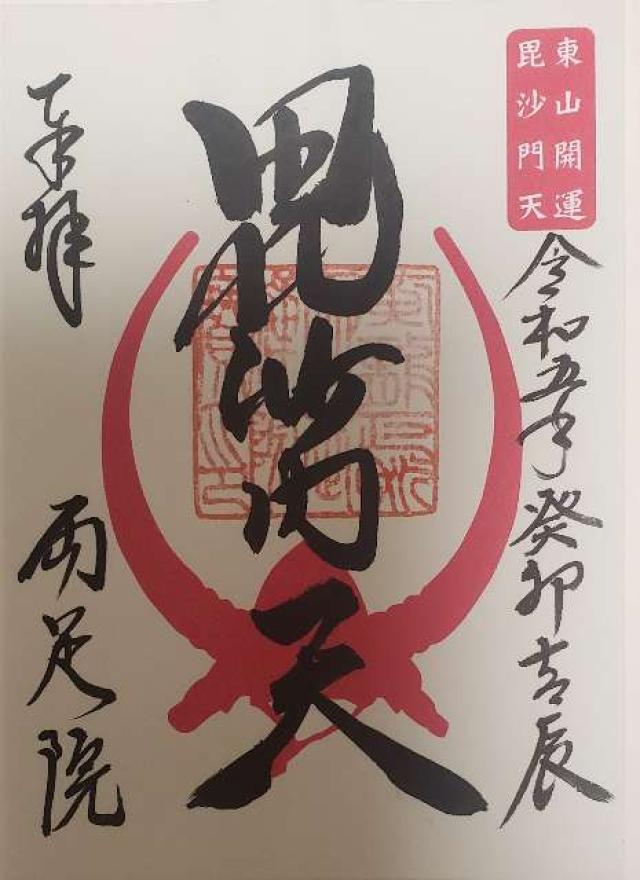 東山開運
毘沙門天
令和五年癸卯吉辰
毘沙門天
奉拝
両足院